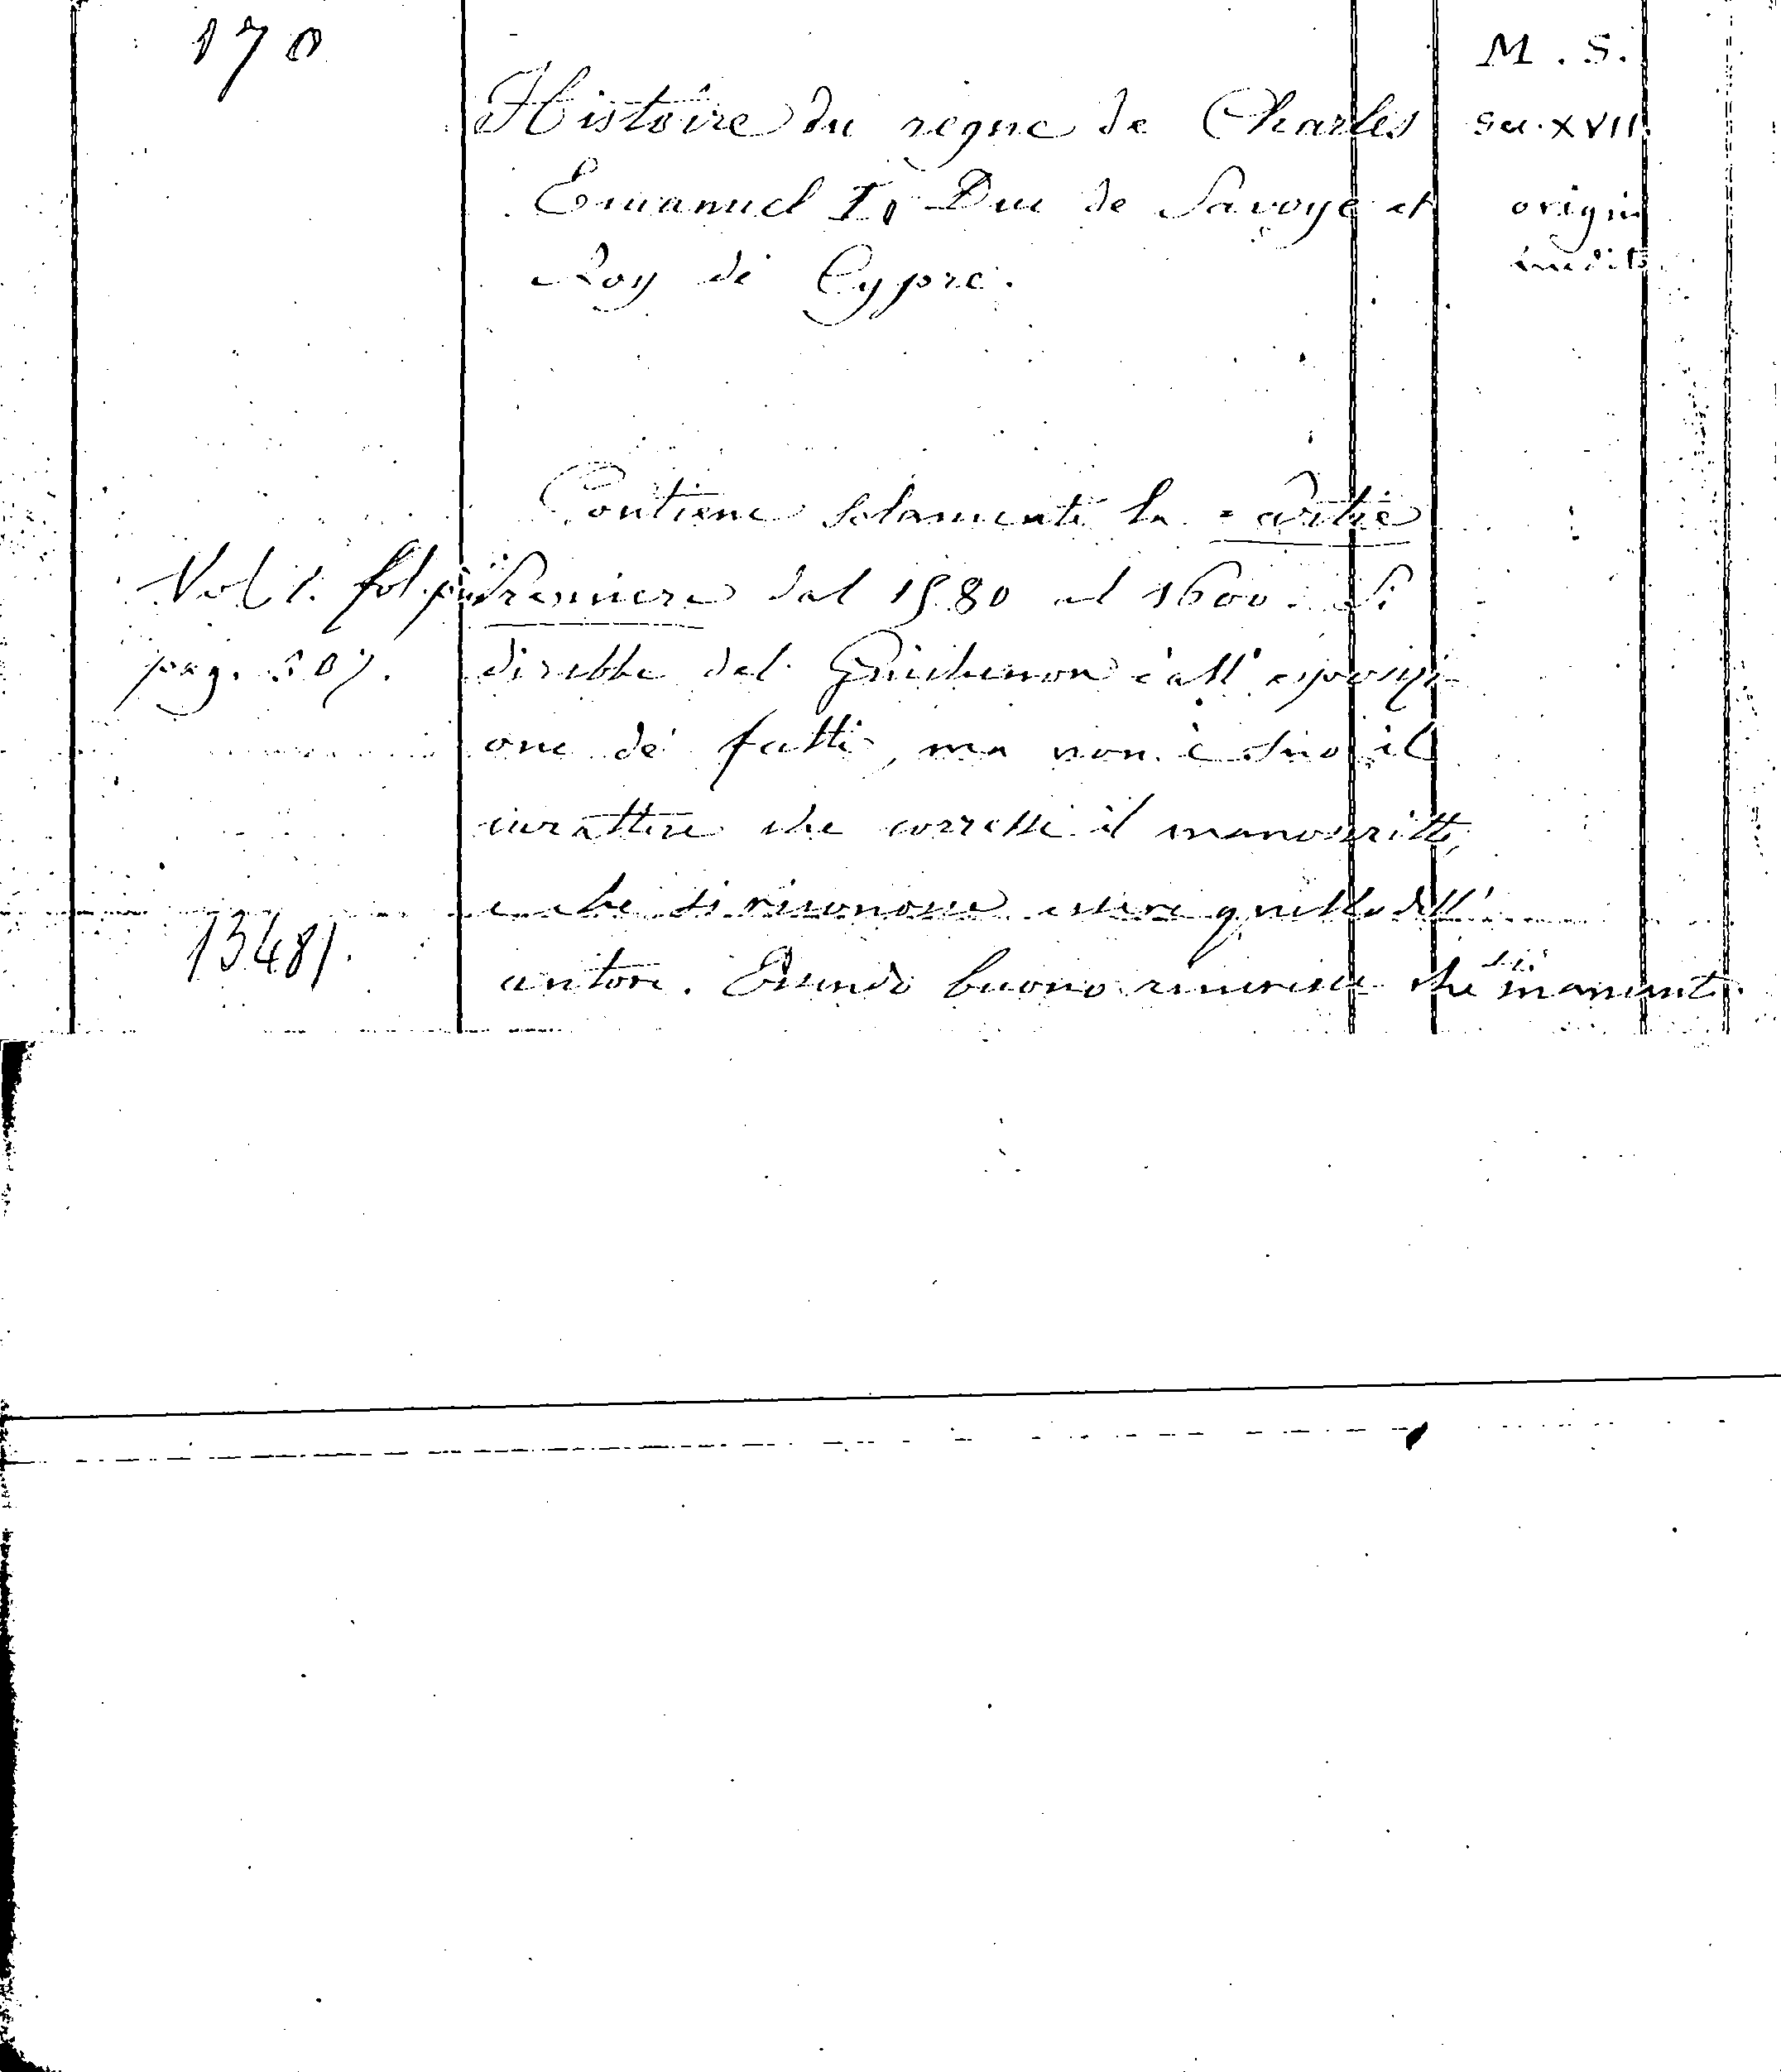 170
M. S.
Histoire du regne de Charles
sec. XVII.
Emanuel I, Duc de Savoye et
origin
Roy de Cypre.
inedito
Contiene solamente la partie
Vol. 1. fol. pic.
Premiere dal 1580 al 1600. Si
pag. 507.
direbbe del Guichenon e all' esposizi-
one de' fatti, ma non è suo il
carattere che corresse il manoscritto,
e che si riconosce essere quello dell'
13481.
autore. Essendo buono rincresce che sia mancante.